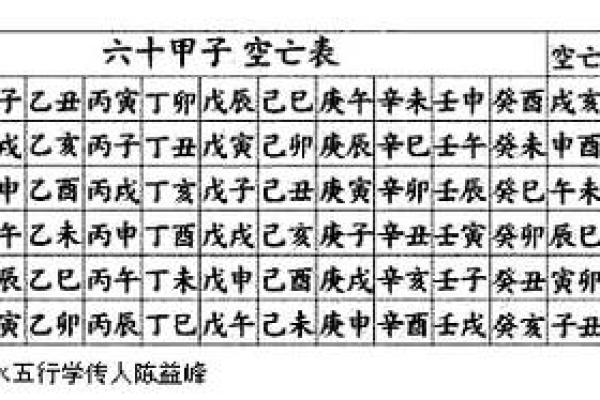 六十甲子 空亡表 空亡
子 乙丑 丙寅 丁卯 戊辰 己巳 庚午 辛未 壬申 癸酉 戌亥
戌 乙亥 丙子 丁丑 戊寅 己卯 庚辰 辛巳 壬午 癸未 申酉
申 乙酉 丙戌 丁亥 戊子 己丑 庚寅 辛卯 壬辰 癸巳 午未
午 乙未 丙申 丁酉 戊戌 己亥 庚子 辛丑 壬寅 癸卯 辰巳
辰 乙巳 丙午 丁未 戊申 己酉 庚戌 辛亥 壬子 癸丑 寅卯
寅 乙卯 丙辰 丁巳 戊午 己未 庚申 辛酉 壬戌 癸亥 子丑
水五行学传人陈益峰